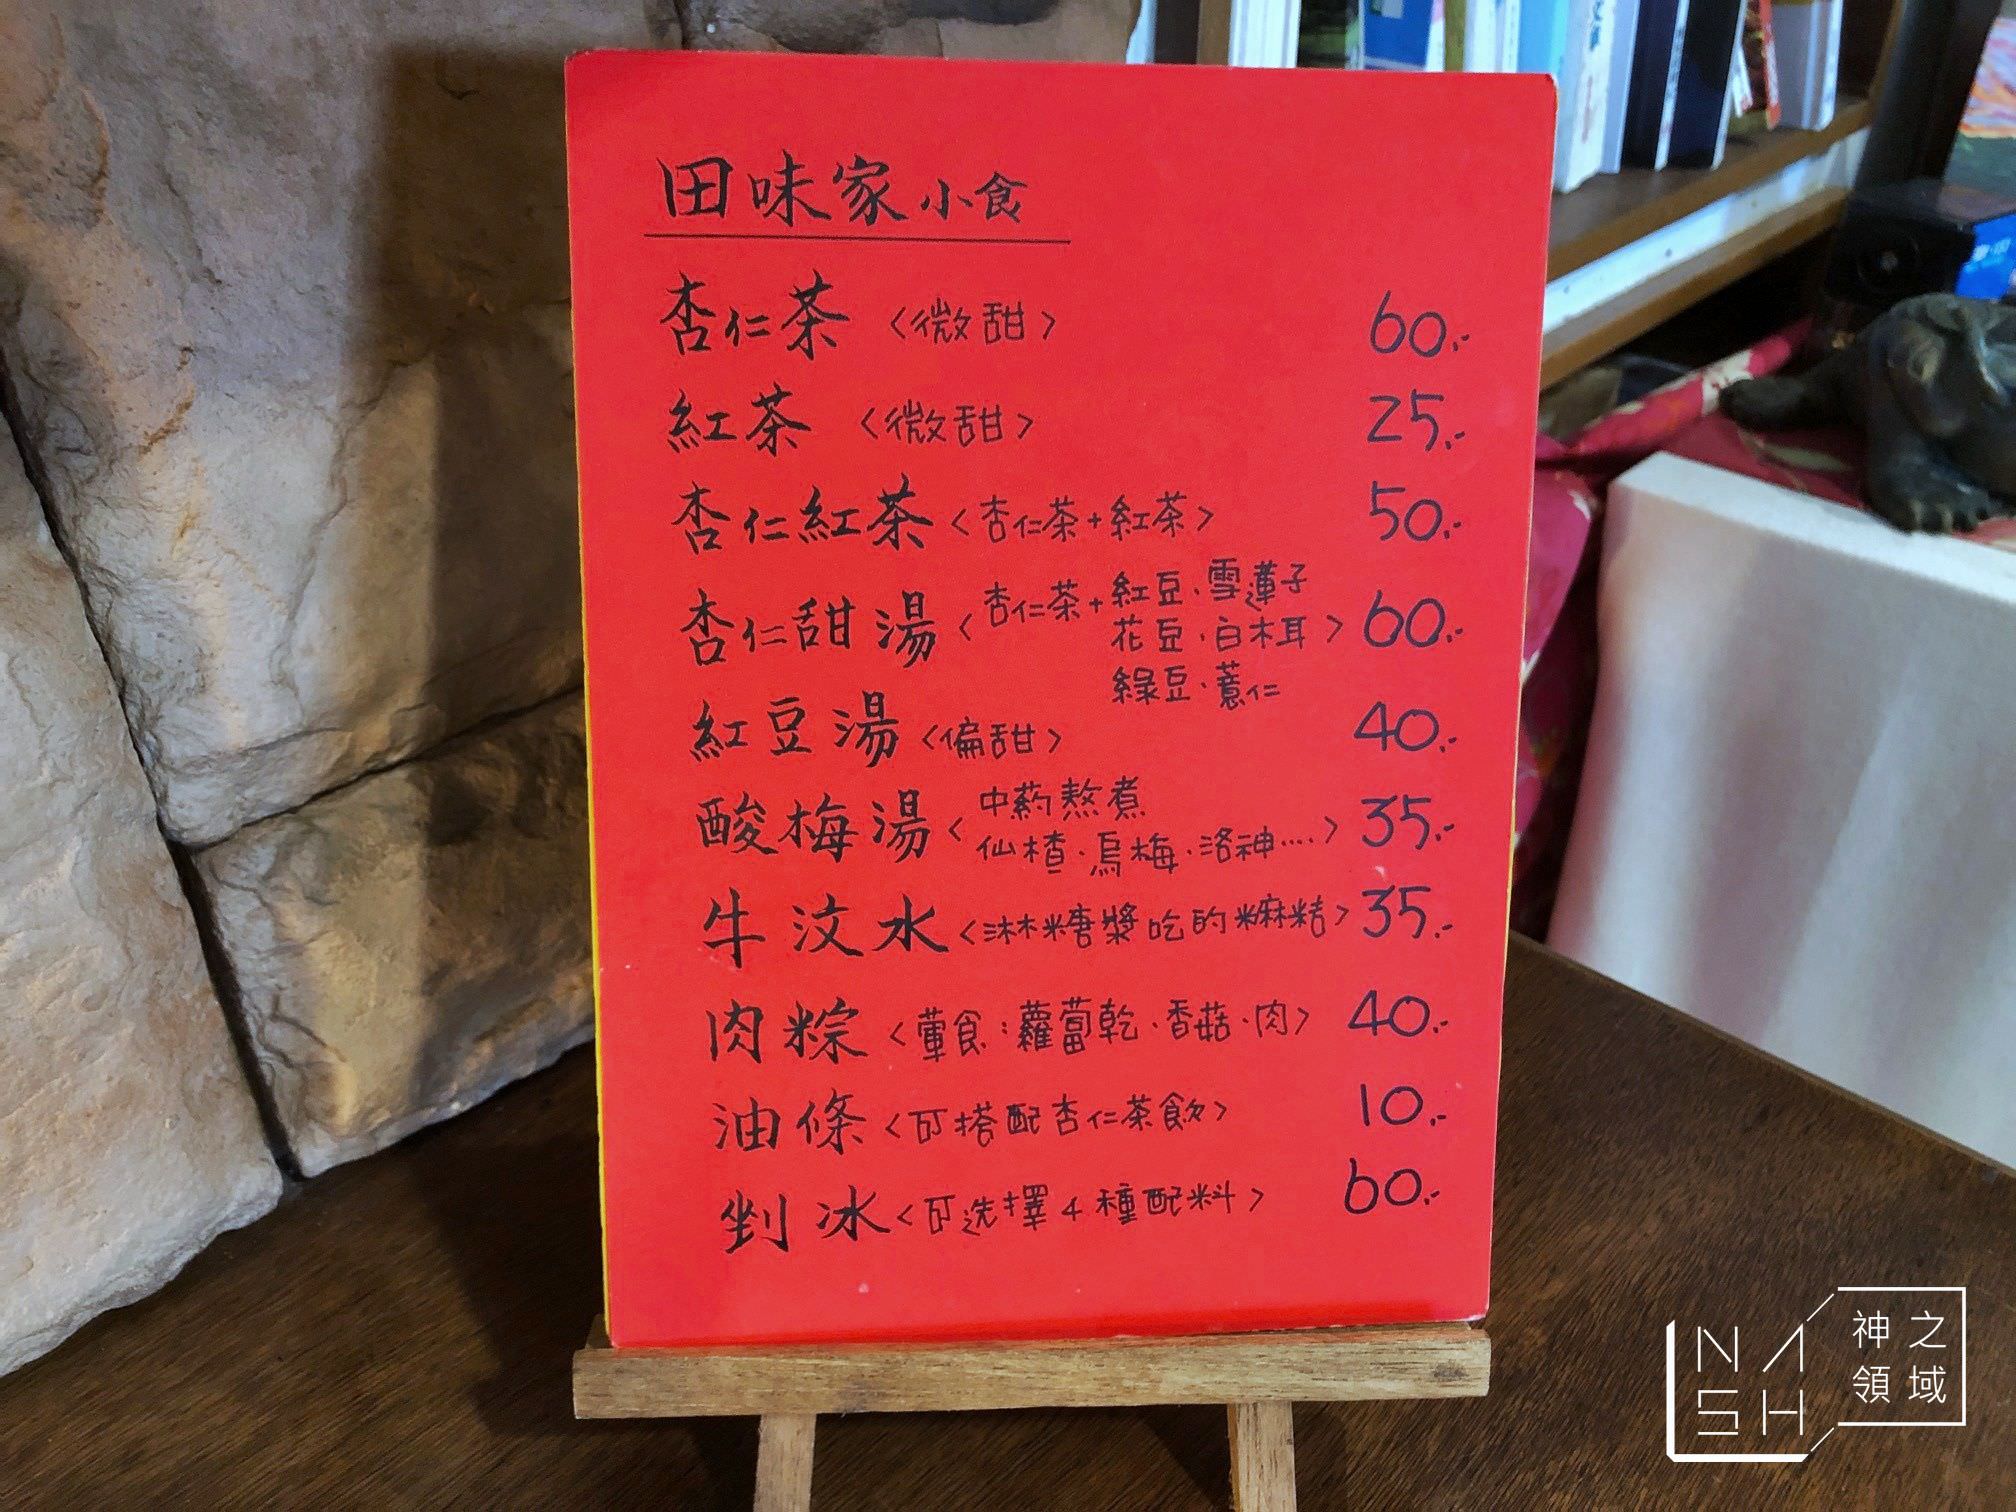 田味家小食
杏仁茶 <微甜> 60.-
紅茶 <微甜> 25.-
杏仁紅茶 <杏仁茶+紅茶> 50.-
杏仁甜湯 <杏仁茶+紅豆.雪蓮子
花豆.白木耳> 60.-
綠豆.薏仁
紅豆湯 <偏甜> 40.-
酸梅湯 <中葯熬煮
仙楂.烏梅.洛神....> 35.-
牛汶水 <淋糖漿吃的麻糬> 35.-
肉粽 <葷食:蘿蔔乾.香菇.肉> 40.-
油條 <可搭配杏仁茶飲> 10.-
剉冰 <可选擇4種配料> 60.-
NASH
神之
領域